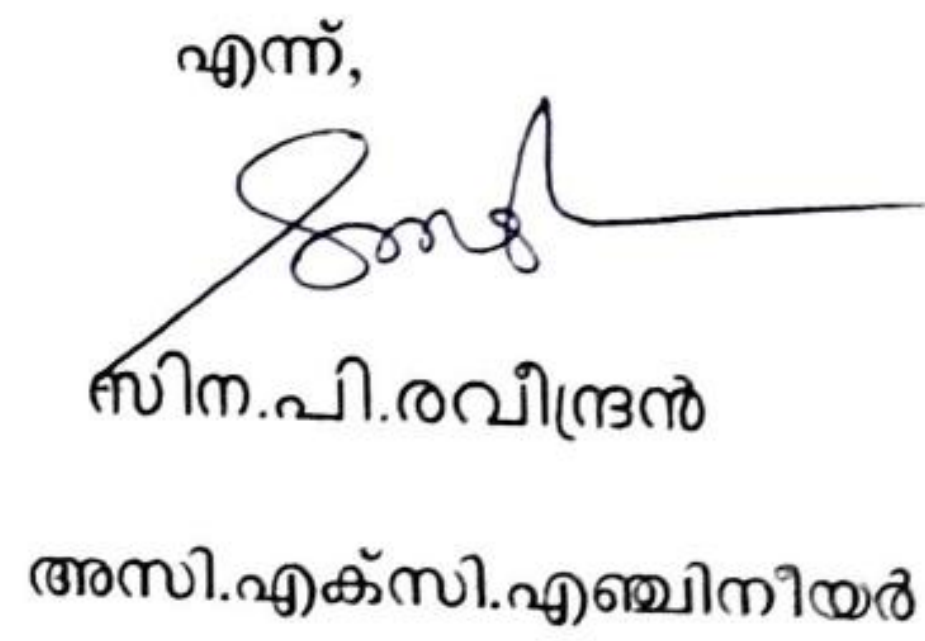 എന്ന്,
സിന.പി.രവീന്ദ്രൻ
അസി.എക്സി.എഞ്ചിനീയർ